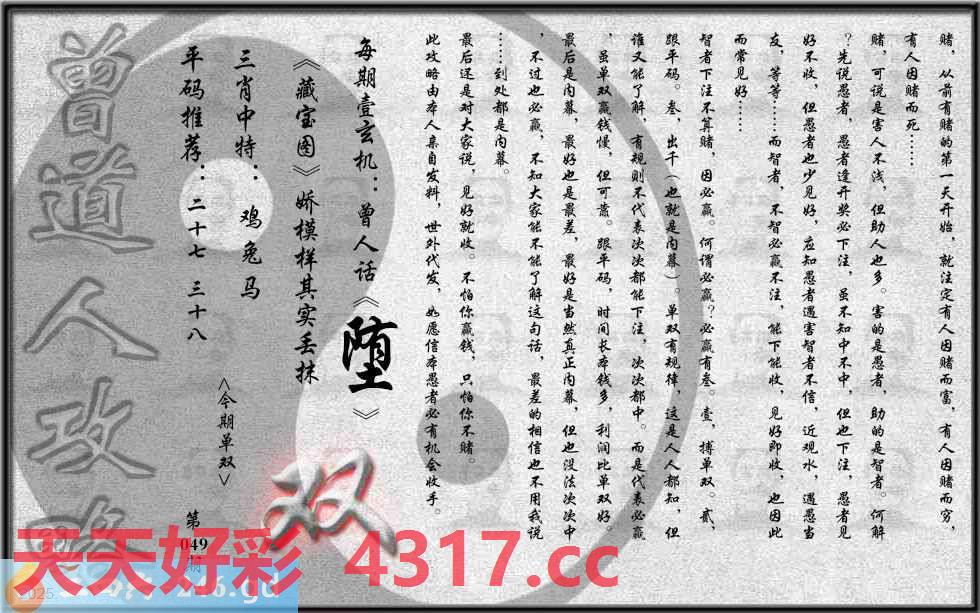 赌，从前有赌的第一天开始，就注定有人因赌而富，有人因赌而穷，
有人因赌而死……
赌，可说是害人不浅，但助人也多。害的是愚者，助的是智者。何解
？先说愚者，愚者逢开奖必下注，虽不知中不中，但也下注，愚者见
好不收，但愚者也少见好，应知愚者遇害智者不信，近观水，遇愚当
友，等等……而智者，不智必赢不注，能下能收，见好即收，也因此
而常见好……
智者下注不算赌，因必赢。何谓必赢？必赢有叁。壹，搏单双。贰，
跟平码。叁，出千（也就是内幕）。单双有规律，这是人人都知，但
谁又能了解，有规则不代表次次都能下注，次次都中。而是代表必赢
，虽单双赢钱慢，但可靠。跟平码，时间长本钱多，利润比单双好。
最后是内幕，最好也是最差，最好是当然真正内幕，但也没法次次中
，不过也必赢，不知大家能不能了解这句话，最差的相信也不用我说
……到处都是内幕。
最后还是对大家说，见好就收。不怕你赢钱，只怕你不赌。
此攻略由本人亲自发料，世外代发，如愿信本愚者必有机会收手。
每期壹玄机：曾人话《堕》
《藏宝图》娇模样其实丢抹
三肖中特：鸡兔马
平码推荐：二十七 三十八
<今期单双>
双
第
049
期
曾道人攻略
天天好彩 4317.cc
2025
246.gd